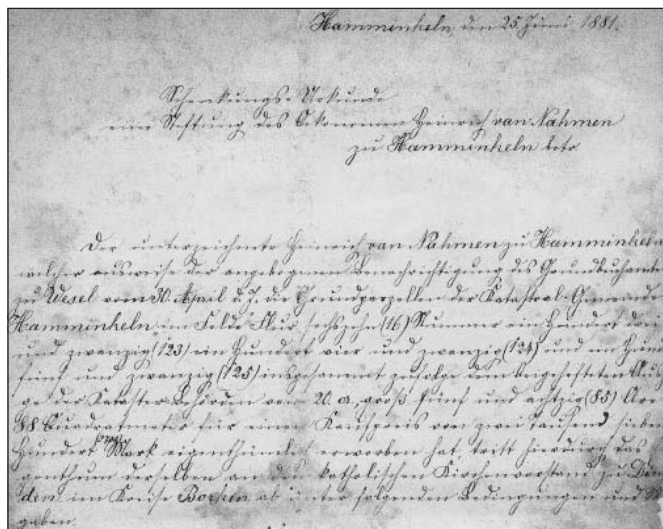 Hamminkeln, den 25 Juni 1881.
Schenkungs-Urkunde
eine Stiftung des Oekonomen Heinrich van Nahmen
zu Hamminkeln betr.
Der unterzeichnete Heinrich van Nahmen zu Hamminkeln
welcher ausweise der angebogenen Benachrichtigung des Grundbuchamts
zu Wesel vom 30. April d. J. die Grundparzellen der Katastral-Gemeinde
Hamminkeln im Felde Flur sechszehn (16) Nummer ein Hundert drei
und zwanzig (123) ein Hundert vier und zwanzig (124) und ein Hun
fünf und zwanzig (125) insgesammt zufolge dem angehefteten Aus
ge der Kataster-Behörden vom 20. groß fünf und achtzig (85) Are
88 Quadratmeter für einen Kaufpreis von zwei Tausend sieben
Hundert Mark eigenthümlich erworben hat, tritt hierdurch das
genthum derselben an den katholischen Kirchenvorstand zu Din
den im Kreise Borken ab unter folgenden Bedingungen und
gaben.